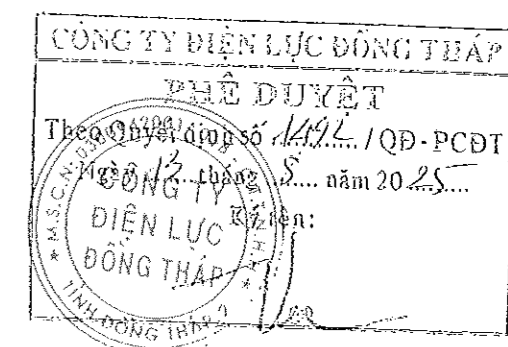 CÔNG TY ĐIỆN LỰC ĐỒNG THÁP
PHÊ DUYỆT
Theo Quyết định số 1494 / QĐ - PCĐT
Ngày 12 tháng 5 năm 2025
Ký tên:
CÔNG TY
ĐIỆN LỰC
ĐỒNG THÁP
M.S.C.N:
TỈNH ĐỒNG THÁP